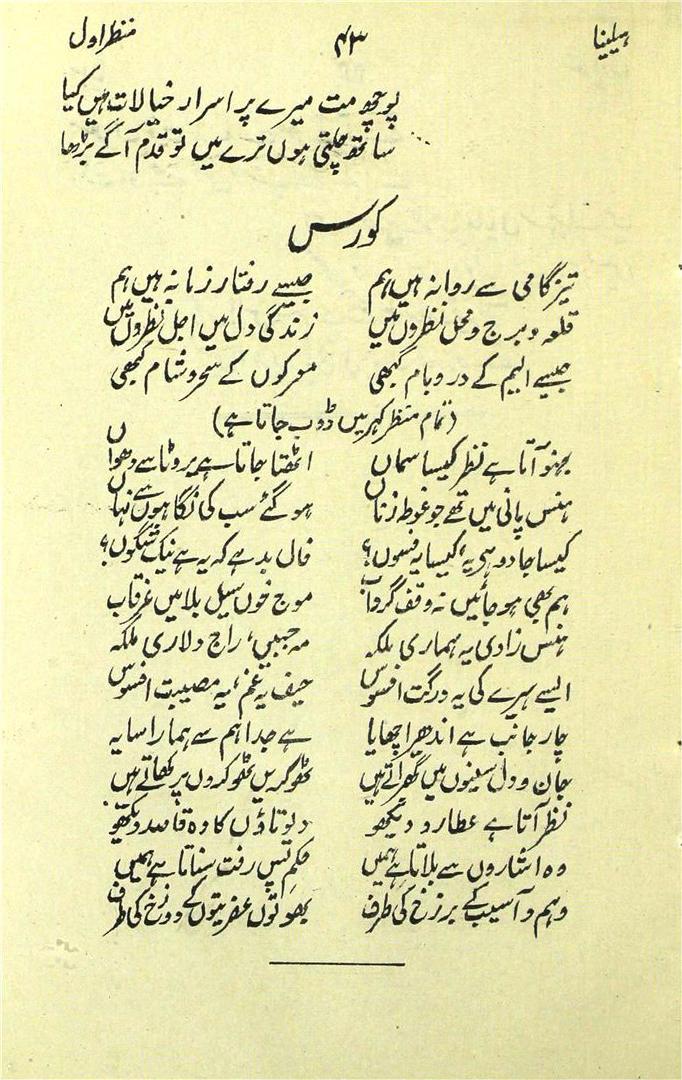 ہیلینا ۴۳ منظر اول
پوچھو مت میرے پر اسرار خیالات ہیں کیا
ساتھ چلتی ہوں ترے میں تو قدم آگے بڑھا
کورس
تیز گامی سے روانہ ہیں ہم جیسے رفتار زمانہ ہیں ہم
قلعہ و برج و محل نظروں میں زندگی دل میں اجل نظروں میں
جیسے الیم کے در و بام کبھی معرکوں کے سحر و شام کبھی
(تمام منظر کہر میں ڈوب جاتا ہے)
بہنو آتا ہے نظر کیسا سماں اٹھتا جاتا ہے یروٹا سے دھواں
ہنس پانی میں تھے جو غوطہ زناں ہو گئے سب کی نگاہوں سے نہاں
کیسا جادو ہی یہ، کیسا یہ فسوں؟ فال بد ہے کہ یہ ہے نیک شگوں؟
ہم بھی ہو جائیں نہ وقف گرداب موج خوں سیل بلا میں غرقاب
ہنس زادی یہ ہماری ملکہ مہ جبیں، راج دلاری ملکہ
ایسے ہیرے کی یہ درگت افسوس حیف یہ غم، یہ مصیبت افسوس
چار جانب ہے اندھیرا چھایا ہے جدا ہم سے ہمارا سایہ
جان و دل سینوں میں گھبراتے ہیں ٹھوکریں ٹھوکروں پر کھاتے ہیں
نظر آتا ہے عطارد دیکھو دیوتاؤں کا وہ قاصد دیکھو
وہ اشاروں سے بلاتا ہے ہمیں حکم پس رفت سناتا ہے ہمیں
وہم و آسیب کے برزخ کی طرف بھوتوں عفریتوں کے دوزخ کی طرف